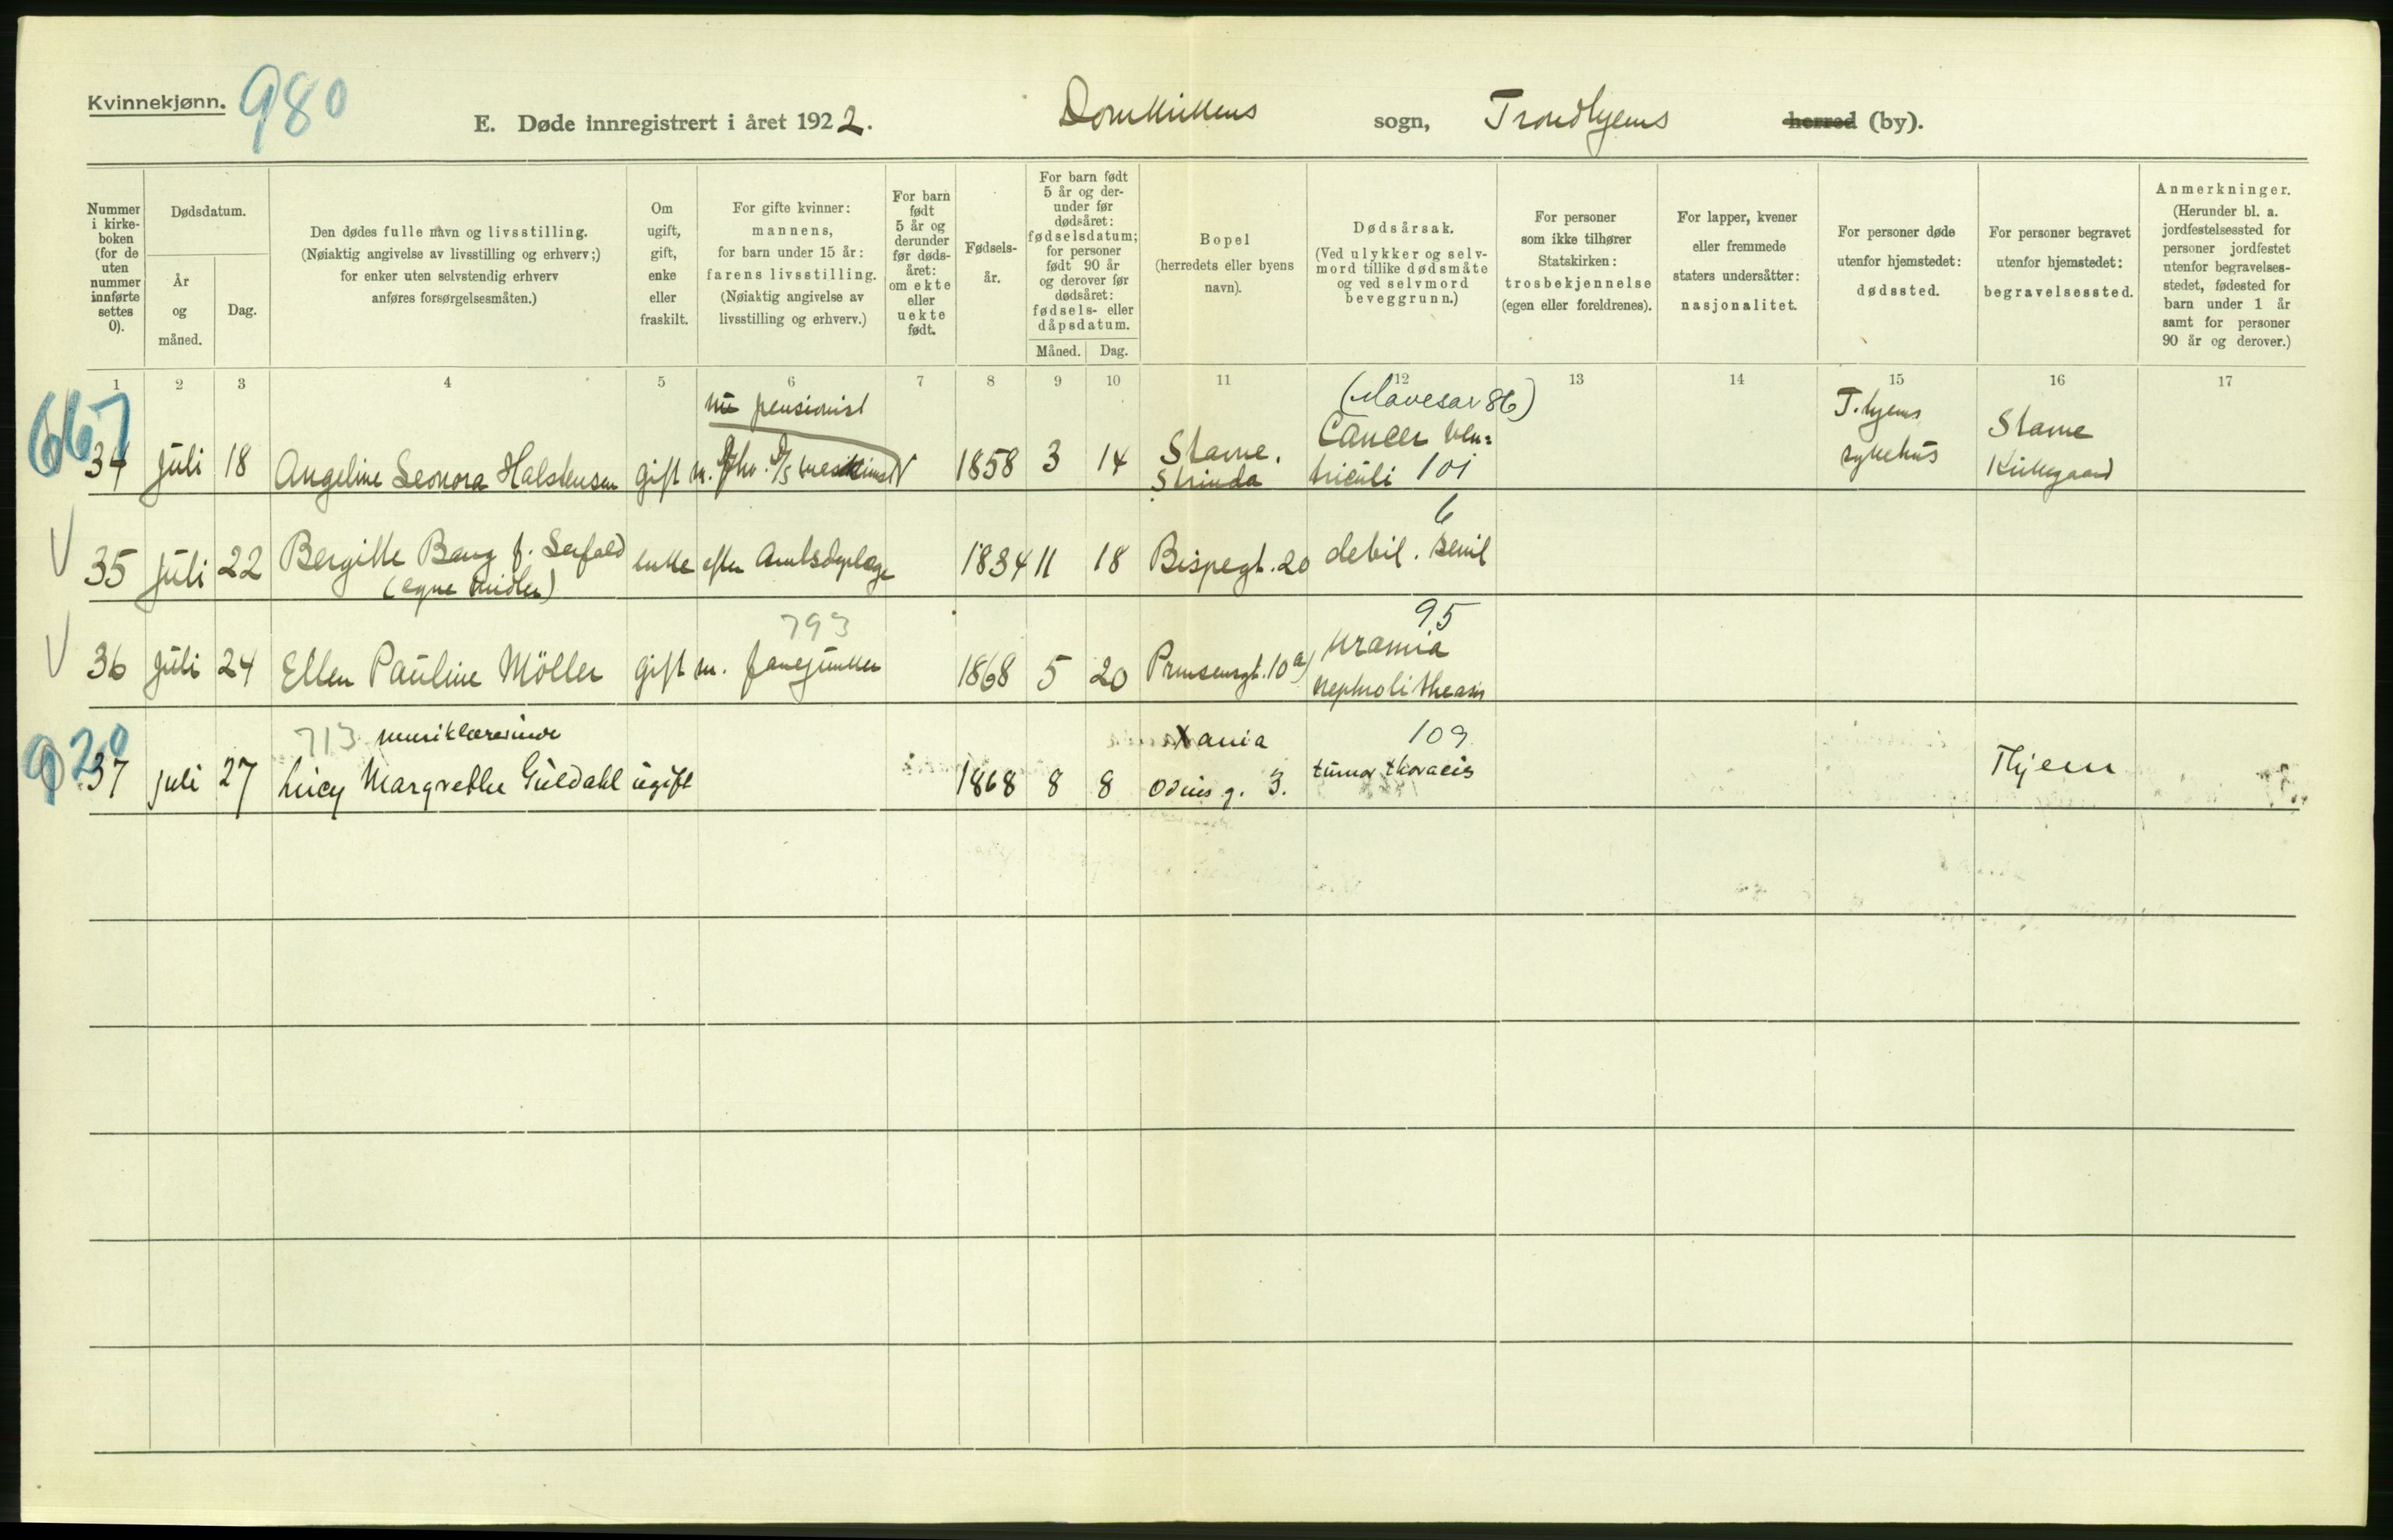 Kvinnekjønn. 980
E. Døde innregistrert i året 1922. Domkirkens sogn, Trondhjems herred (by).
Nummer i kirke- boken (for de uten nummer innførte settes 0).
Dødsdatum.
År og måned.
Dag.
Den dødes fulle navn og livsstilling.
(Nøiaktig angivelse av livsstilling og erhverv;)
for enker uten selvstendig erhverv
anføres forsørgelsesmåten.)
Om ugift, gift, enke eller fraskilt.
For gifte kvinner:
mannens,
for barn under 15 år:
farens livsstilling.
(Nøiaktig angivelse av
livsstilling og erhverv.)
For barn født 5 år og derunder før døds- året: om ekte eller uekte født.
Fødsels- år.
For barn født 5 år og der- under før dødsåret: fødselsdatum; for personer født 90 år og derover før dødsåret: fødsels- eller dåpsdatum.
Måned. Dag.
Bopel
(herredets eller byens
navn).
Dødsårsak.
(Ved ulykker og selv-
mord tillike dødsmåte
og ved selvmord
beveggrunn.)
For personer
som ikke tilhører
Statskirken:
trosbekjennelse
(egen eller foreldrenes).
For lapper, kvener
eller fremmede
staters undersåtter:
nasjonalitet.
For personer døde
utenfor hjemstedet:
dødssted.
For personer begravet
utenfor hjemstedet:
begravelsessted.
Anmerkninger.
(Herunder bl. a.
jordfestelsessted for
personer jordfestet
utenfor begravelses-
stedet, fødested for
barn under 1 år
samt for personer
90 år og derover.)
1 2 3 4 5 6 7 8 9 10 11 12 13 14 15 16 17
667 pensionist (Mavesar 86) T.hjems
34 juli 18 Angeline Leonora Halstensen gift m. 1858 3 14 Stavne. Strinda Cancer ven= triculi 101 sykehus Stavne Kirkegaard
6
35 juli 22 Bergitte Bang f. Serfald enke efter Amtsdyrlæge 1834 11 18 Bispegt. 20 debil. senil
(egne midler)
793 95
36 juli 24 Ellen Pauline Möller gift m. fanejunker 1868 5 20 Prinsensgt. 10 a) Uramia
nephrolitheasis
920 713 musiklærerinde Xania 109
37 juli 27 Lucy Margrethe Guldahl ugift 1868 8 8 Odins g. 3. tumor thoracis Thjem